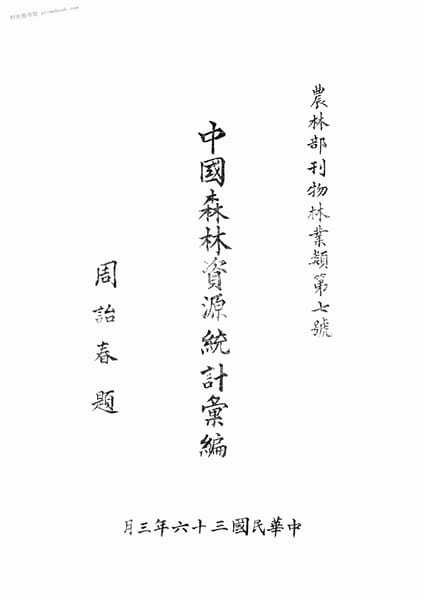 时光图书馆 etimebook.com
農林部刊物林業類第七號
中國森林資源統計彙編
周詒春題
中華民國三十六年三月